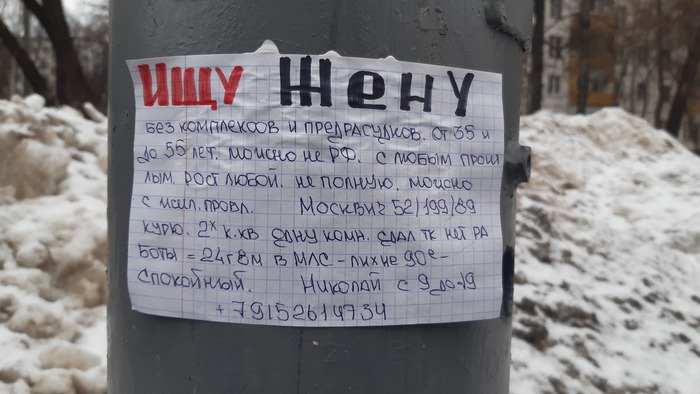 ИЩУ ЖЕНУ
БЕЗ КОМПЛЕКСОВ И ПРЕДРАСУДКОВ. ОТ 35 И
ДО 55 ЛЕТ. МОЖНО НЕ РФ. С ЛЮБЫМ ПРОШ
ЛЫМ. РОСТ ЛЮБОЙ. НЕ ПОЛНУЮ. МОЖНО
С ЖИЛ. ПРОБЛ. МОСКВИЧ 52/199/89
КУРЮ. 2Х К.КВ ОДНУ КОМН. СДАЛ ТК НЕТ РА
БОТЫ = 24г 8м В МЛС - ЛИХИЕ 90е-
СПОКОЙНЫЙ. НИКОЛАЙ С 9 ДО 19
+79152614734